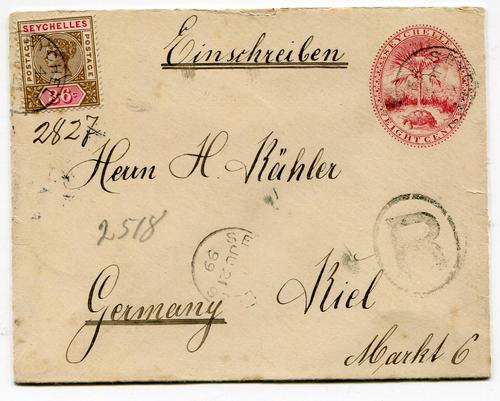 SEYCHELLES
POSTAGE
POSTAGE
36c
Einschreiben
SEYCHELLES
EIGHT CENTS
2827
Herrn H. Kähler
2518
JU 21
99
R
Germany
Kiel
Markt 6